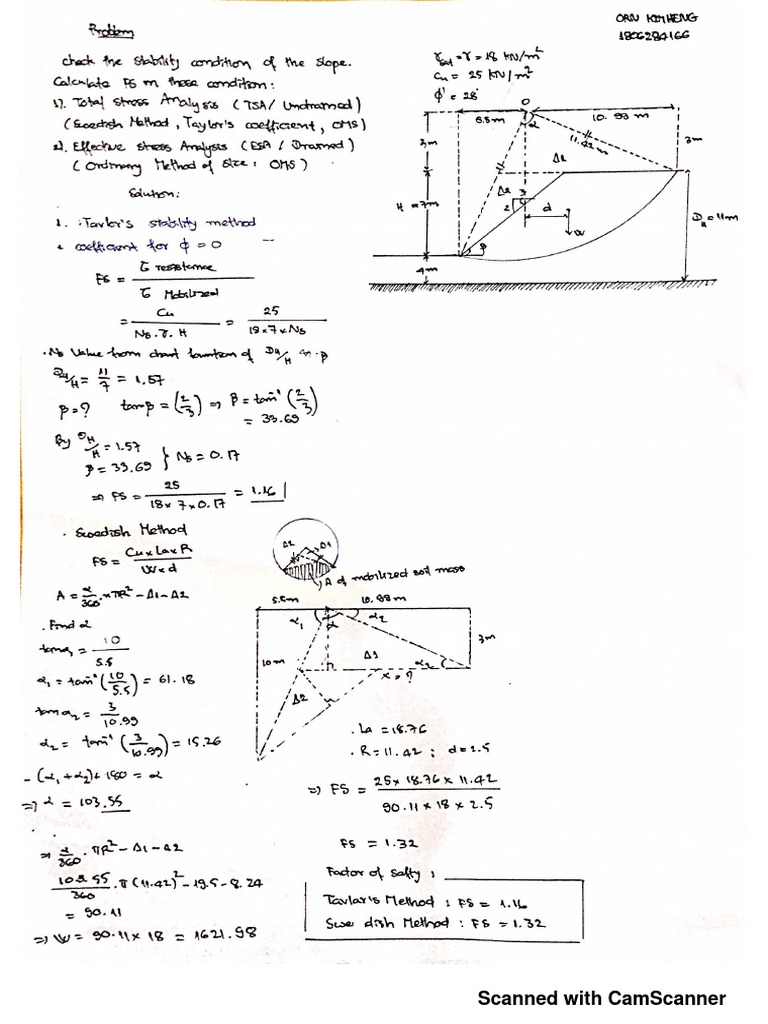 Problem
ORN KIMHENG
1806284166
check the stability condition of the slope.
Calculate FS on these condition:
1). Total Stress Analysis (TSA/ Undrained)
(Swedish Method, Taylor's coefficient, OMS)
2). Effective Stress Analysis (ESA / Drained)
(Ordinary Method of Slice: OMS)
Solution:
γsat = γ = 18 KN/m²
Cu = 25 KN/m²
ϕ' = 28°
O
5.5m
α
10.99m
3m
11.42m
3m
Δ1
Δ2
3
2
d
H = 7m
W
β
DH = 11m
4m
1. Taylor's stability method
coefficient for ϕ = 0
FS = τ resistance / τ Mobilized
= Cu / Ns.γ.H = 25 / 18×7×Ns
. Ns Value from chart function of DH/H β
DH/H = 11/7 = 1.57
β = ? tanβ = (2/3) => β = tan⁻¹(2/3)
= 33.69
By DH/H = 1.57
β = 33.69 } Ns = 0.17
=> FS = 25 / 18×7×0.17 = 1.16
. Swedish Method
FS = Cu×La×R / W×d
A = α/360 ×πR² - Δ1 - Δ2
Δ2
Δ1
A of mobilized soil mass
. Find α
tanα1 = 10 / 5.5
α1 = tan⁻¹(10/5.5) = 61.18
tanα2 = 3 / 10.99
α2 = tan⁻¹(3/10.99) = 15.26
-(α1+α2)+180 = α
=> α = 103.55
5.5m
10.99m
α1
α
α2
3m
10m
Δ1
α2
x = ?
Δ2
. La = 18.76
. R = 11.42 ; d = 2.5
=> FS = 25×18.76×11.42 / 90.11×18×2.5
FS = 1.32
=> α/360 . πR² - Δ1 - Δ2
103.55/360 . π(11.42)² - 19.5 - 8.24
= 90.11
=> W = 90.11×18 = 1621.98
Factor of Safty :
Taylar's Method : FS = 1.16
Swedish Method : FS = 1.32
Scanned with CamScanner